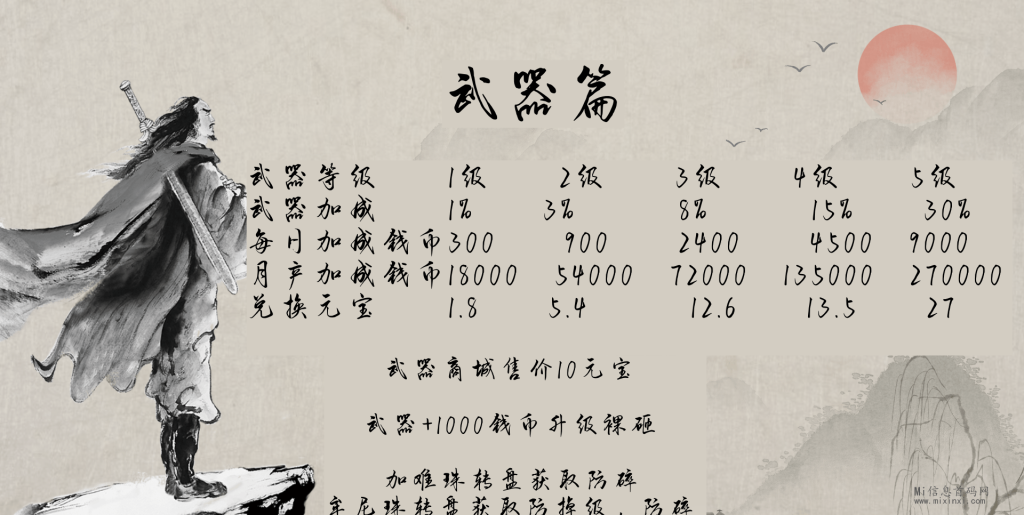 武器篇
武器等级 1级 2级 3级 4级 5级
武器加成 1% 3% 8% 15% 30%
每月加成钱币 300 900 2400 4500 9000
月产加成钱币 18000 54000 72000 135000 270000
兑换元宝 1.8 5.4 12.6 13.5 27
武器商城售价10元宝
武器+1000钱币升级裸砸
加难珠转盘获取防碎
牟尼珠转盘获取防掉级、防碎
Mi信息首码网
www.mixinxi.com